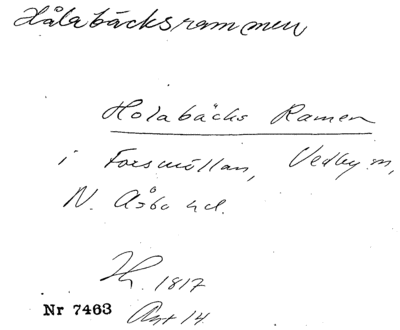 Hålabäcksrammen
Holabäcks Ramen
i Forsmöllan, Vedby sn,
N. Åsbo hd.
1817
Nr 7463 Akt 14